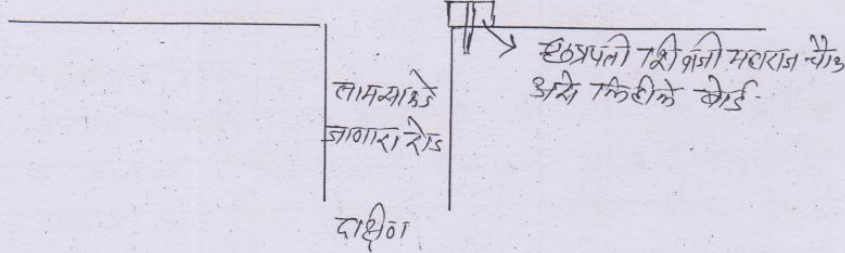 छत्रपती शिवाजी महाराज चौक
असे लिहीले बोर्ड
लामसाकडे
जाणारा रोड
दक्षीण